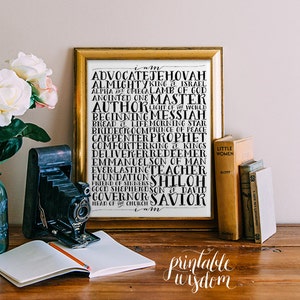 i am
ADVOCATE JEHOVAH
ALMIGHTY KING of ISRAEL
ALPHA and OMEGA LAMB OF GOD
ANOINTED ONE MASTER
AUTHOR LIGHT of the WORLD
BEGINNING MESSIAH
BREAD of LIFE MORNING STAR
BRIDEGROOM PRINCE OF PEACE
CARPENTER PROPHET
COMFORTER KING of KINGS
DELIVERER REDEEMER
EMMANUEL SON OF MAN
EVERLASTING TEACHER
FOUNDATION SHILOH
FRIEND OF SINNERS
GOOD SHEPHERD SON of DAVID
GOVERNOR SAVIOR
HEAD OF the CHURCH
i am
LITTLE WOMEN
printable
wisdom